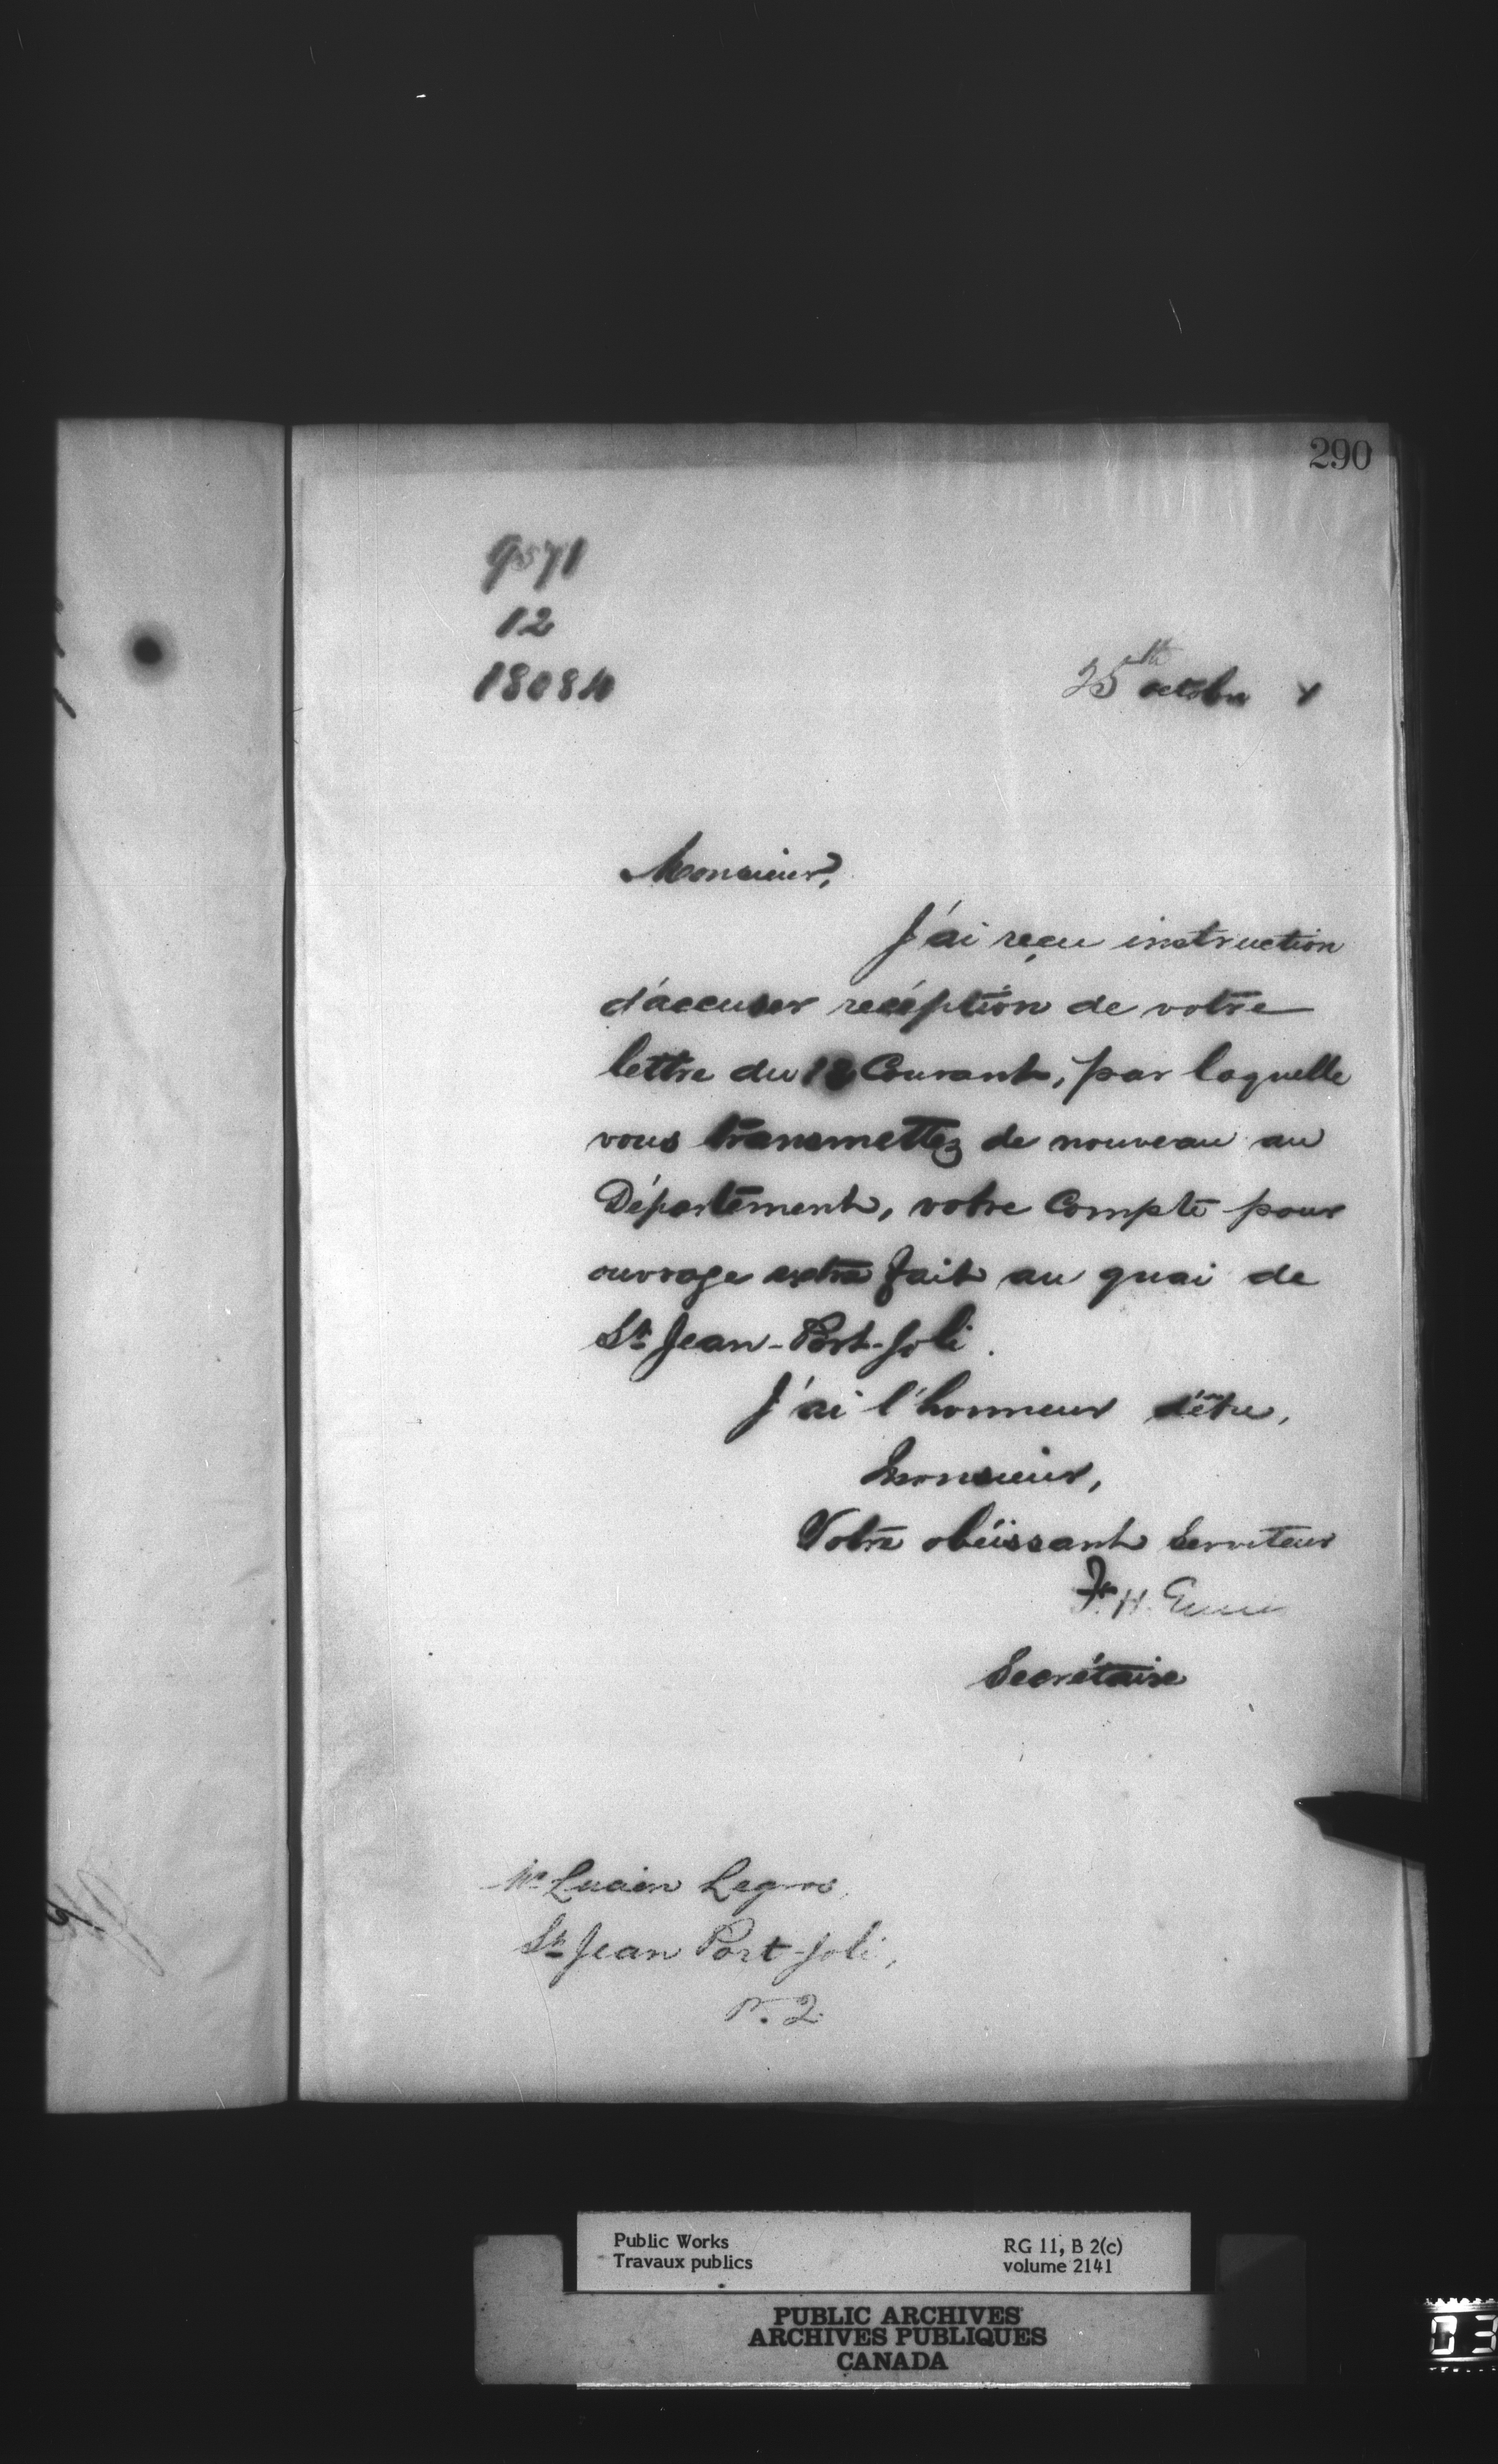 290
9571
12
18084
25th octobre 1
Monsieur,
J'ai reçu instruction
d'accuser réception de votre
lettre du 12 Courant, par laquelle
vous transmettez de nouveau au
Département, votre Compte pour
ouvrage extra fait au quai de
St Jean-Port-Joli.
J'ai l'honneur d'être,
Monsieur,
Votre obéissant Serviteur
F. H. Ennis
Secrétaire
Mr Lucien Legros,
St Jean Port-Joli,
P. 2.
Public Works
Travaux publics
RG 11, B 2(c)
volume 2141
PUBLIC ARCHIVES
ARCHIVES PUBLIQUES
CANADA
03